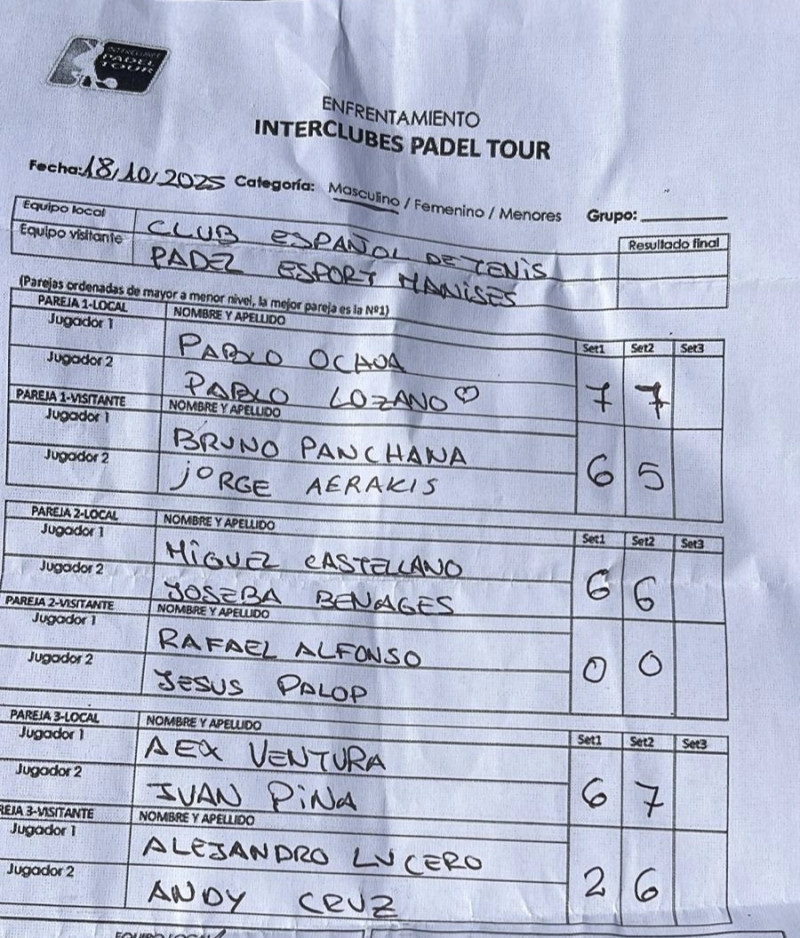 INTERCLUBES
PADEL
TOUR
ENFRENTAMIENTO
INTERCLUBES PADEL TOUR
Fecha: 18/10/2025 Categoría: Masculino / Femenino / Menores Grupo:
Equipo local CLUB ESPAÑOL DE TENIS Resultado final
Equipo visitante PADEL ESPORT MANISES
(Parejas ordenadas de mayor a menor nivel, la mejor pareja es la Nº1)
PAREJA 1-LOCAL NOMBRE Y APELLIDO Set1 Set2 Set3
Jugador 1 PABLO OCHOA
Jugador 2 PABLO LOZANO ♡ 7 7
PAREJA 1-VISITANTE NOMBRE Y APELLIDO
Jugador 1 BRUNO PANCHANA
Jugador 2 JORGE AERAKIS 6 5
PAREJA 2-LOCAL NOMBRE Y APELLIDO Set1 Set2 Set3
Jugador 1 MIGUEL CASTELLANO
Jugador 2 JOSEBA BENAGES 6 6
PAREJA 2-VISITANTE NOMBRE Y APELLIDO
Jugador 1 RAFAEL ALFONSO
Jugador 2 JESUS PALOP 0 0
PAREJA 3-LOCAL NOMBRE Y APELLIDO Set1 Set2 Set3
Jugador 1 AEX VENTURA
Jugador 2 IVAN PIÑA 6 7
REJA 3-VISITANTE NOMBRE Y APELLIDO
Jugador 1 ALEJANDRO LUCERO
Jugador 2 ANDY CRUZ 2 6